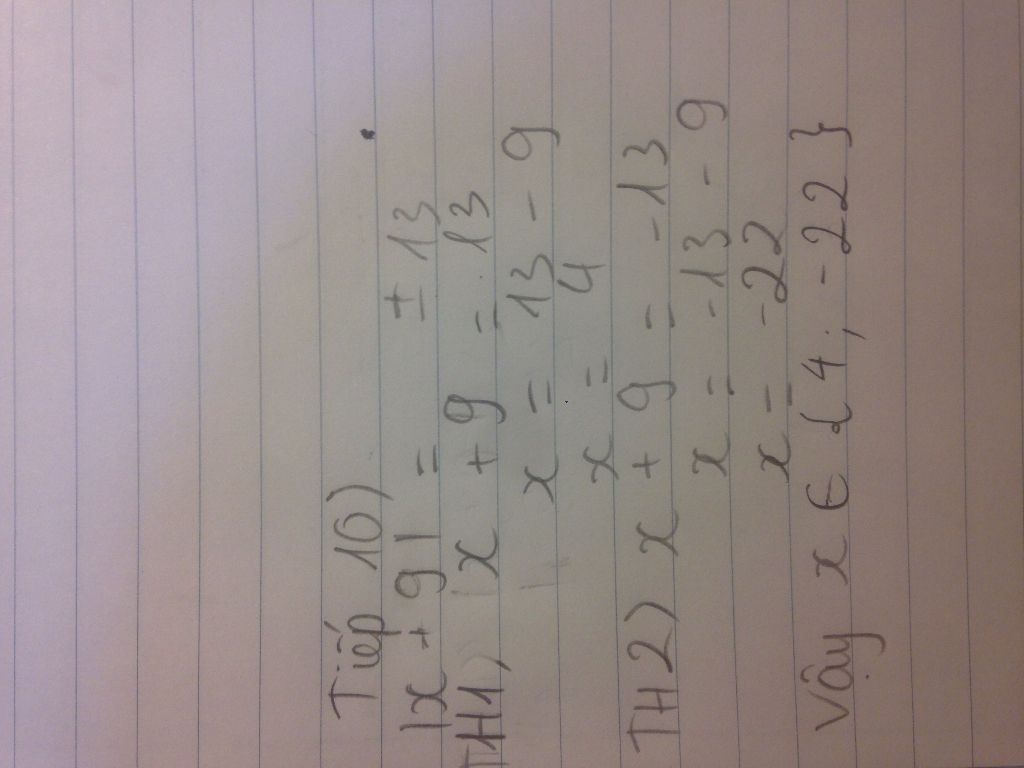 Tiếp 10)
|x + 9| = ± 13
TH1) x + 9 = 13
x = 13 - 9
x = 4
TH2) x + 9 = -13
x = -13 - 9
x = -22
Vậy x ∈ {4; -22}